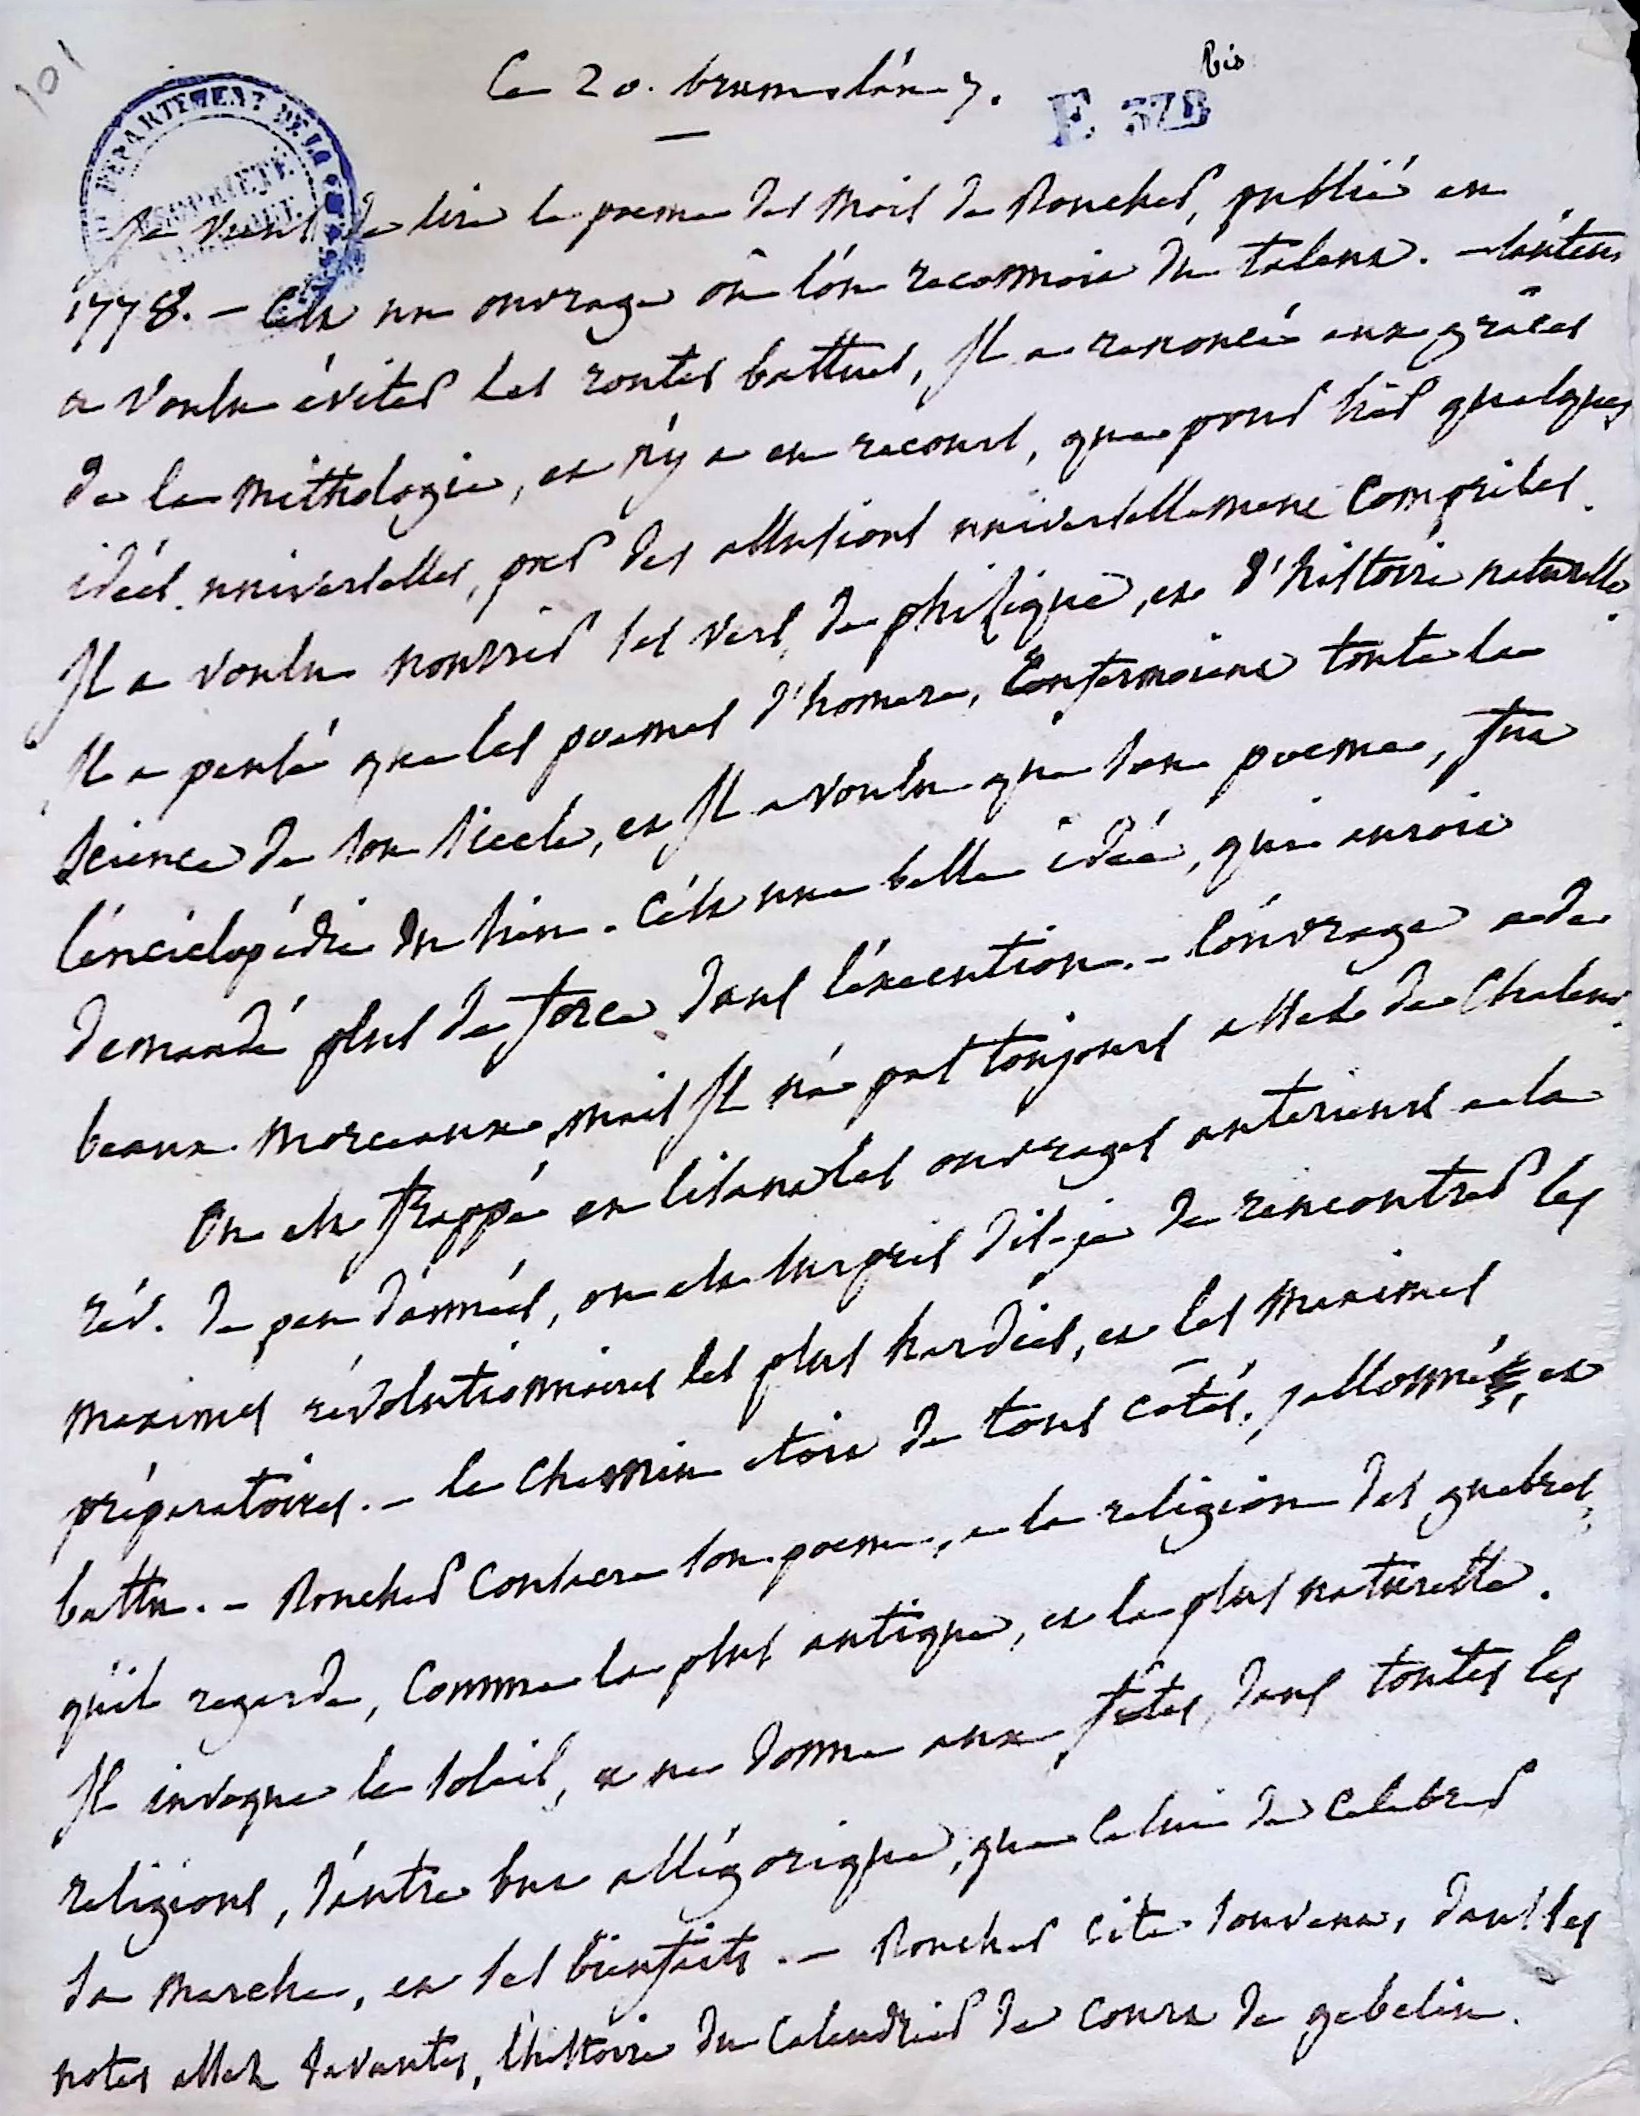 101
Ce 20. brum. l'an 7.
bis
E 378
DÉPARTEMENT DE LA
PROPRIÉTÉ
Je viens de lire le poeme des mois de Roucher, publié en
1778. – C'est un ouvrage où l'on reconnoit du talent. – l'auteur
a voulu éviter les routes battues, Il a renoncé aux grâces
de la mithologie, et n'y a eu recours, que pour lier quelques
idées universelles, par des allusions universellement comprises.
Il a voulu nourrir ses vers, de phisique, et d'histoire naturelle.
Il a pensé que les poemes d'homere, renfermoient toute la
science de son siecle, et Il a voulu que son poeme, fut
l'enciclopédie du sien. C'est une belle idée, qui auroit
demandé plus de force dans l'execution. – l'ouvrage a de
beaux morceaux, mais Il n'a pas toujours assez de chaleur.
On est frappé en lisant les ouvrages anterieurs a la
rév. de peu d'années, on est surpris dis-je de rencontrer les
maximes révolutionnaires les plus hardies, et les maximes
préparatoires. – le chemin etoit de tous côtés, jallonné, et
battu. – Roucher consacre son poeme, a la religion des guebres,
qu'il regarde, comme la plus antique, et la plus naturelle.
Il invoque le soleil, et ne donne aux fêtes, dans toutes les
religions, d'autre but allégorique, que celui de celebrer
sa marche, et ses bienfaits. – Roucher cite souvent, dans les
notes assez savantes, l'histoire du calendrier de Court de gebelin.